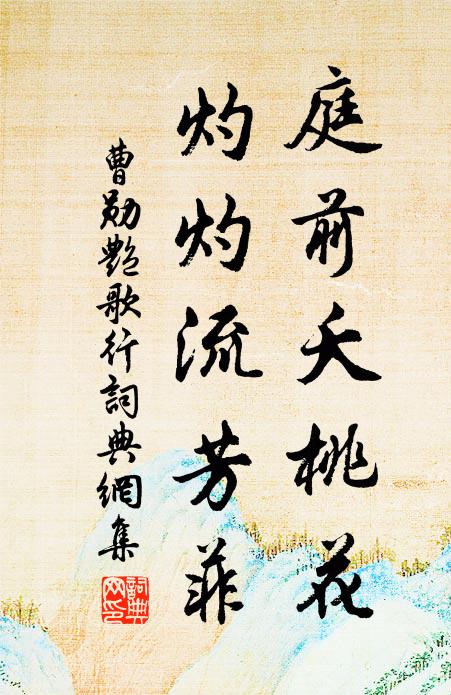 庭前夭桃花
灼灼流芳菲
曹勛艷歌行詞典網集
詞典網印